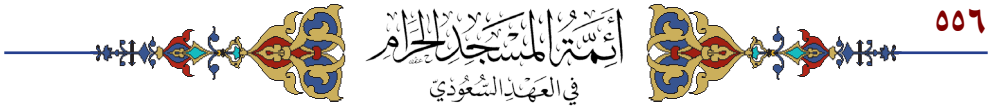 ٥٥٦
أَئِمَّةُ المَسْجِدِ الحَرَامِ
فِي العَهْدِ السُّعُودِيّ